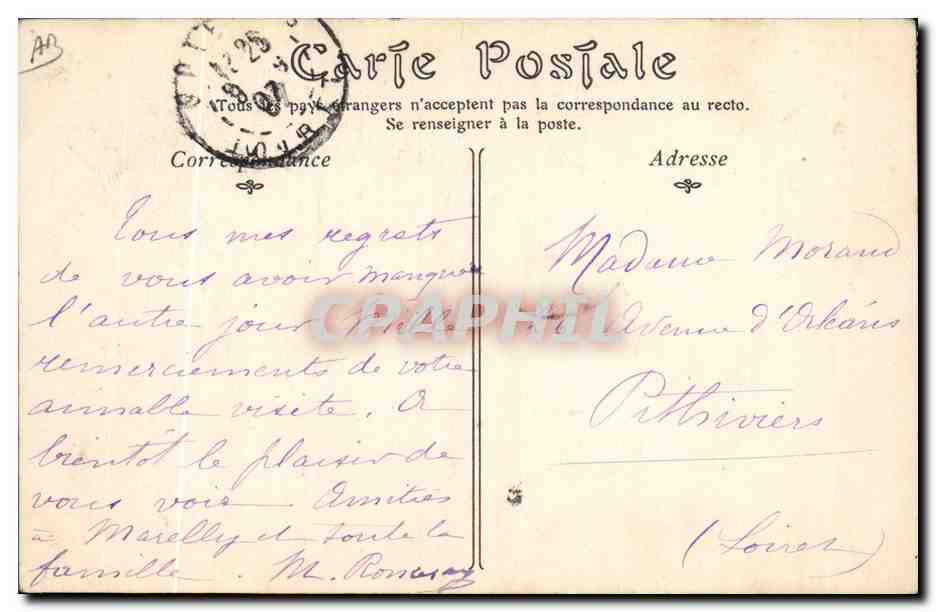 AB
Carte Postale
Tous les pays étrangers n'acceptent pas la correspondance au recto.
Se renseigner à la poste.
Correspondance
Adresse
Tous mes regrets
de vous avoir manquée
l'autre jour Mille
remerciements de votre
aimable visite. A
bientôt le plaisir de
vous voir Amitiés
à Marelly et toute la
famille. M.
Madame Morand
Avenue d'Orléans
Pithiviers
(Loiret)
CPAPHIL